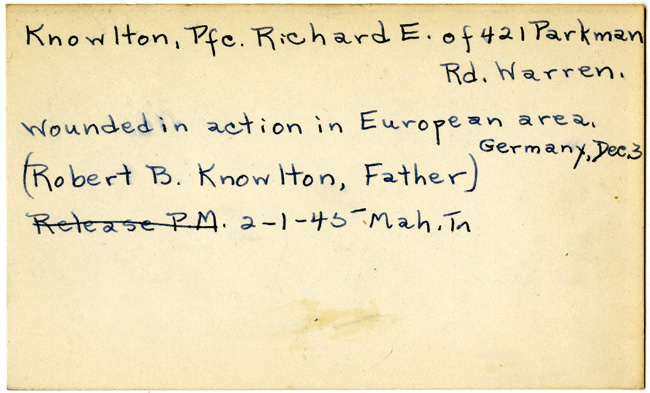 Knowlton, Pfc. Richard E. of 421 Parkman
Rd. Warren.
Wounded in action in European area.
Germany, Dec. 3
(Robert B. Knowlton, Father)
Release P.M. 2-1-45 Mah. Tn